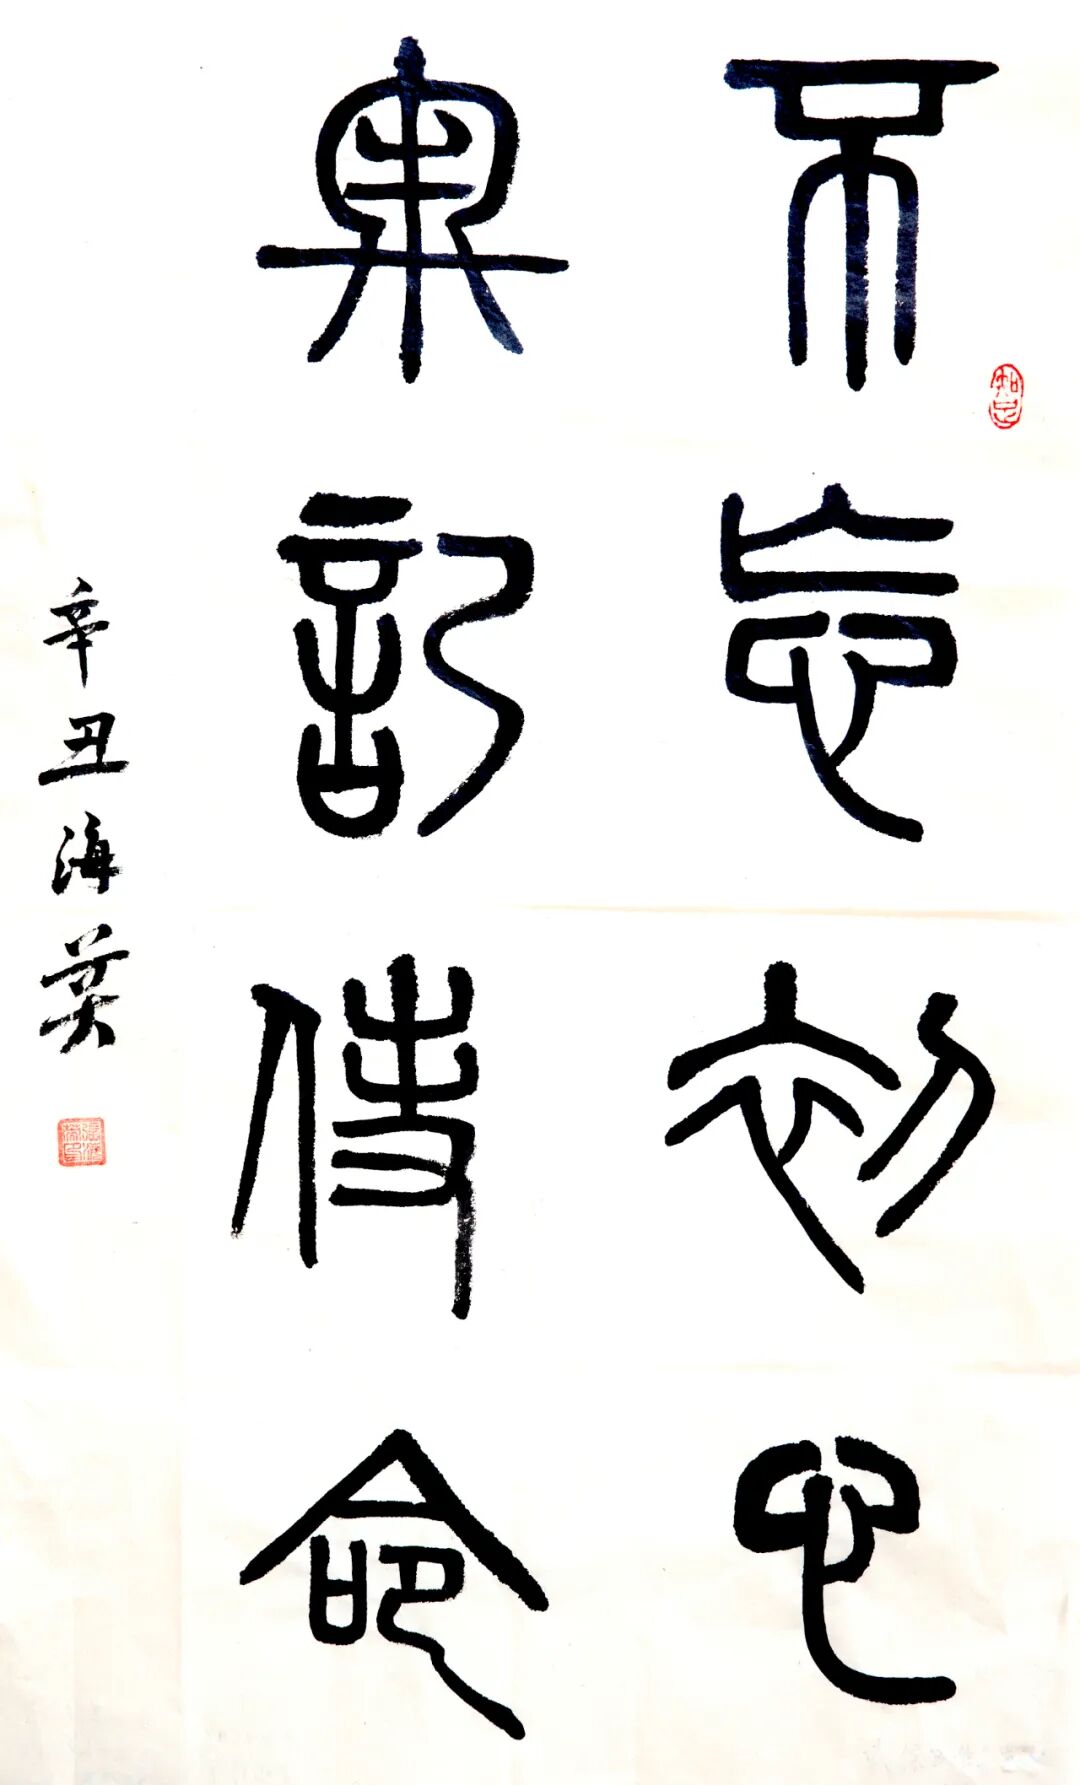 不忘初心
牢記使命
辛丑海英